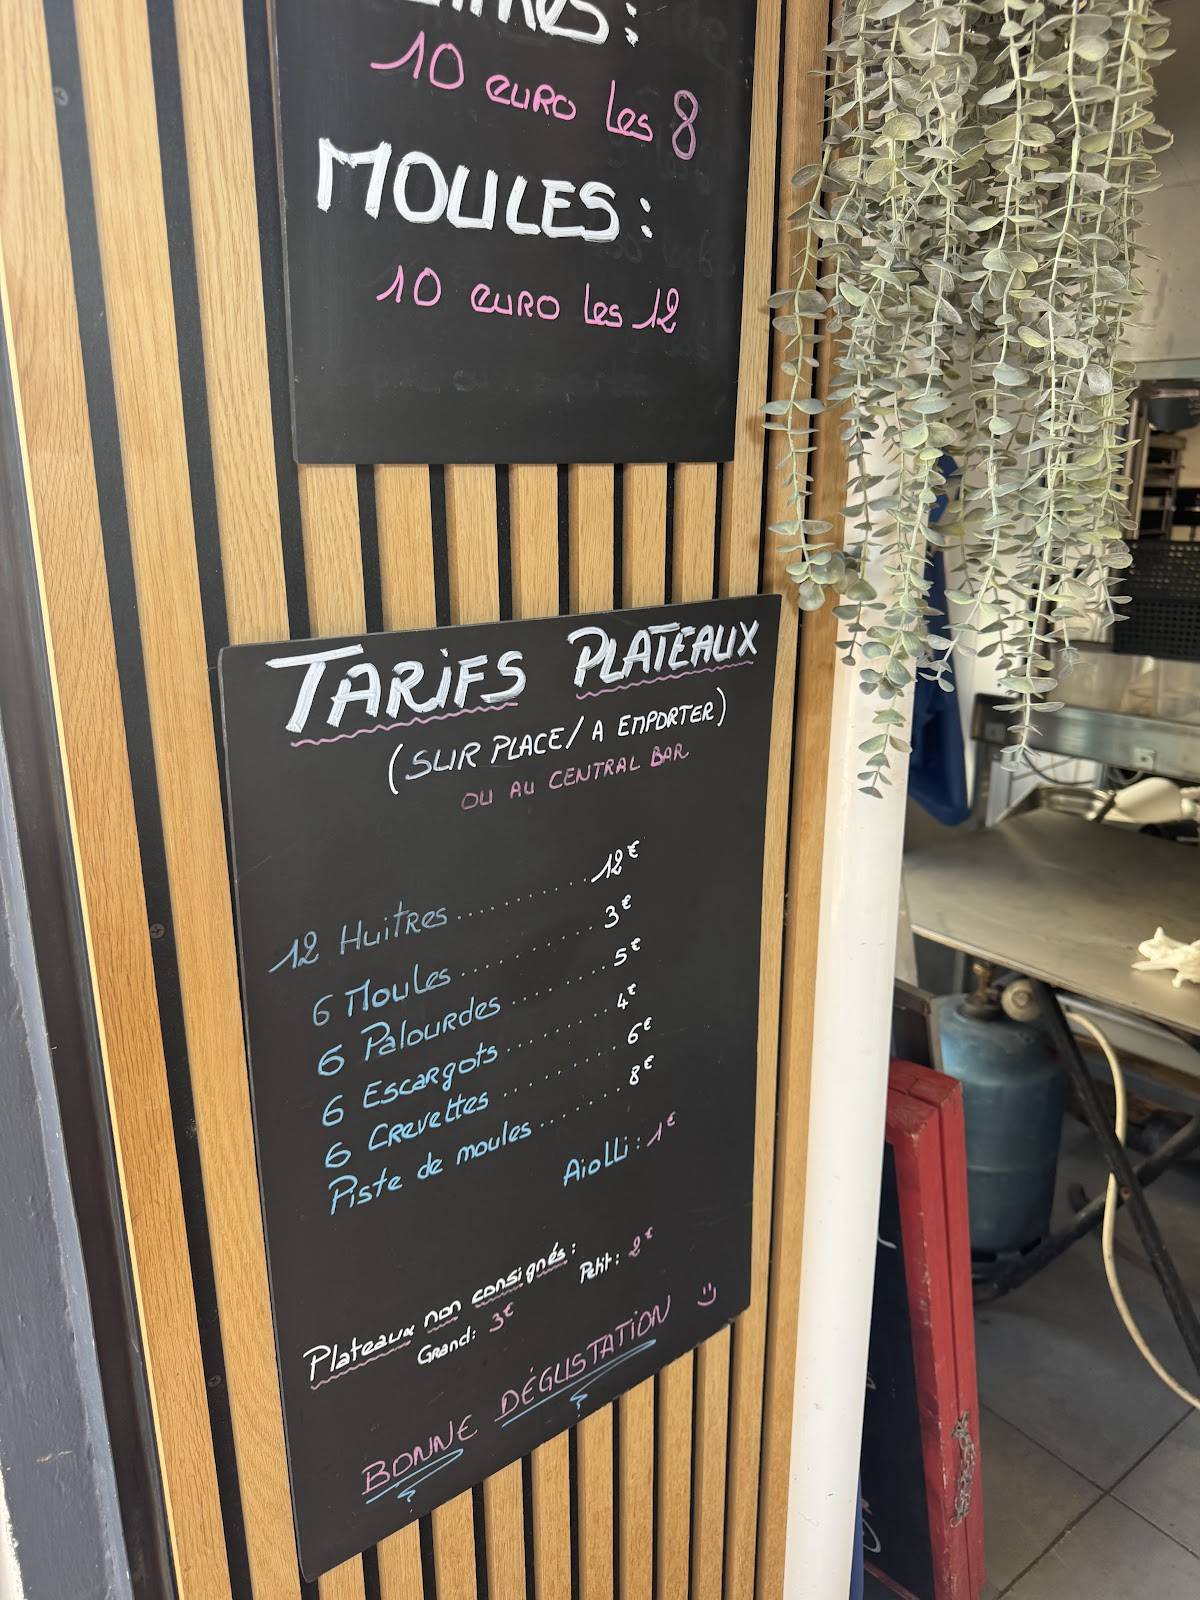 10 EURO les 8
MOULES :
10 EURO les 12
TARIFS PLATEAUX
(SUR PLACE / A EMPORTER)
OU AU CENTRAL BAR
12 Huitres .......... 12€
6 Moules .......... 3€
6 Palourdes .......... 5€
6 Escargots .......... 4€
6 Crevettes .......... 6€
Piste de moules .......... 8€
Aiolli : 1€
Plateaux non consignés :
Grand : 3€ Petit : 2€
BONNE DÉGUSTATION :)